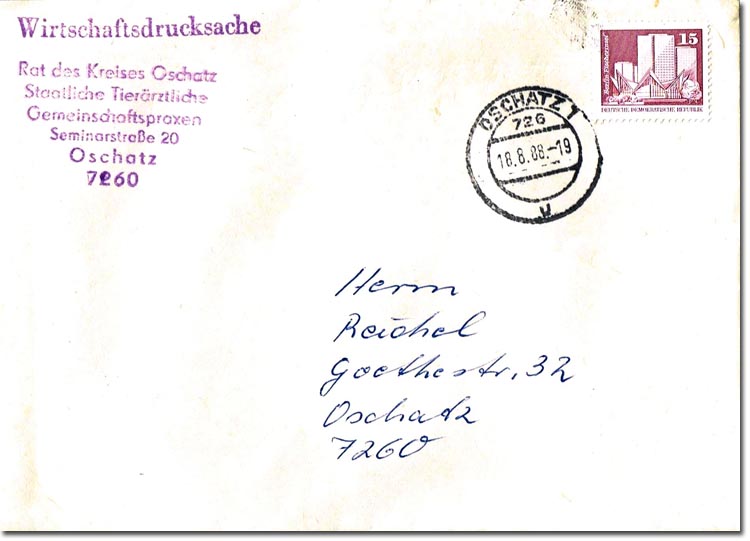 Wirtschaftsdrucksache
Rat des Kreises Oschatz
Staatliche Tierärztliche
Gemeinschaftspraxen
Seminarstraße 20
Oschatz
7260
15
Berlin, Fischerinsel
DEUTSCHE DEMOKRATISCHE REPUBLIK
OSCHATZ 1
726
18.8.88.-19
w
Herrn
Reichel
Goethestr. 32
Oschatz
7260